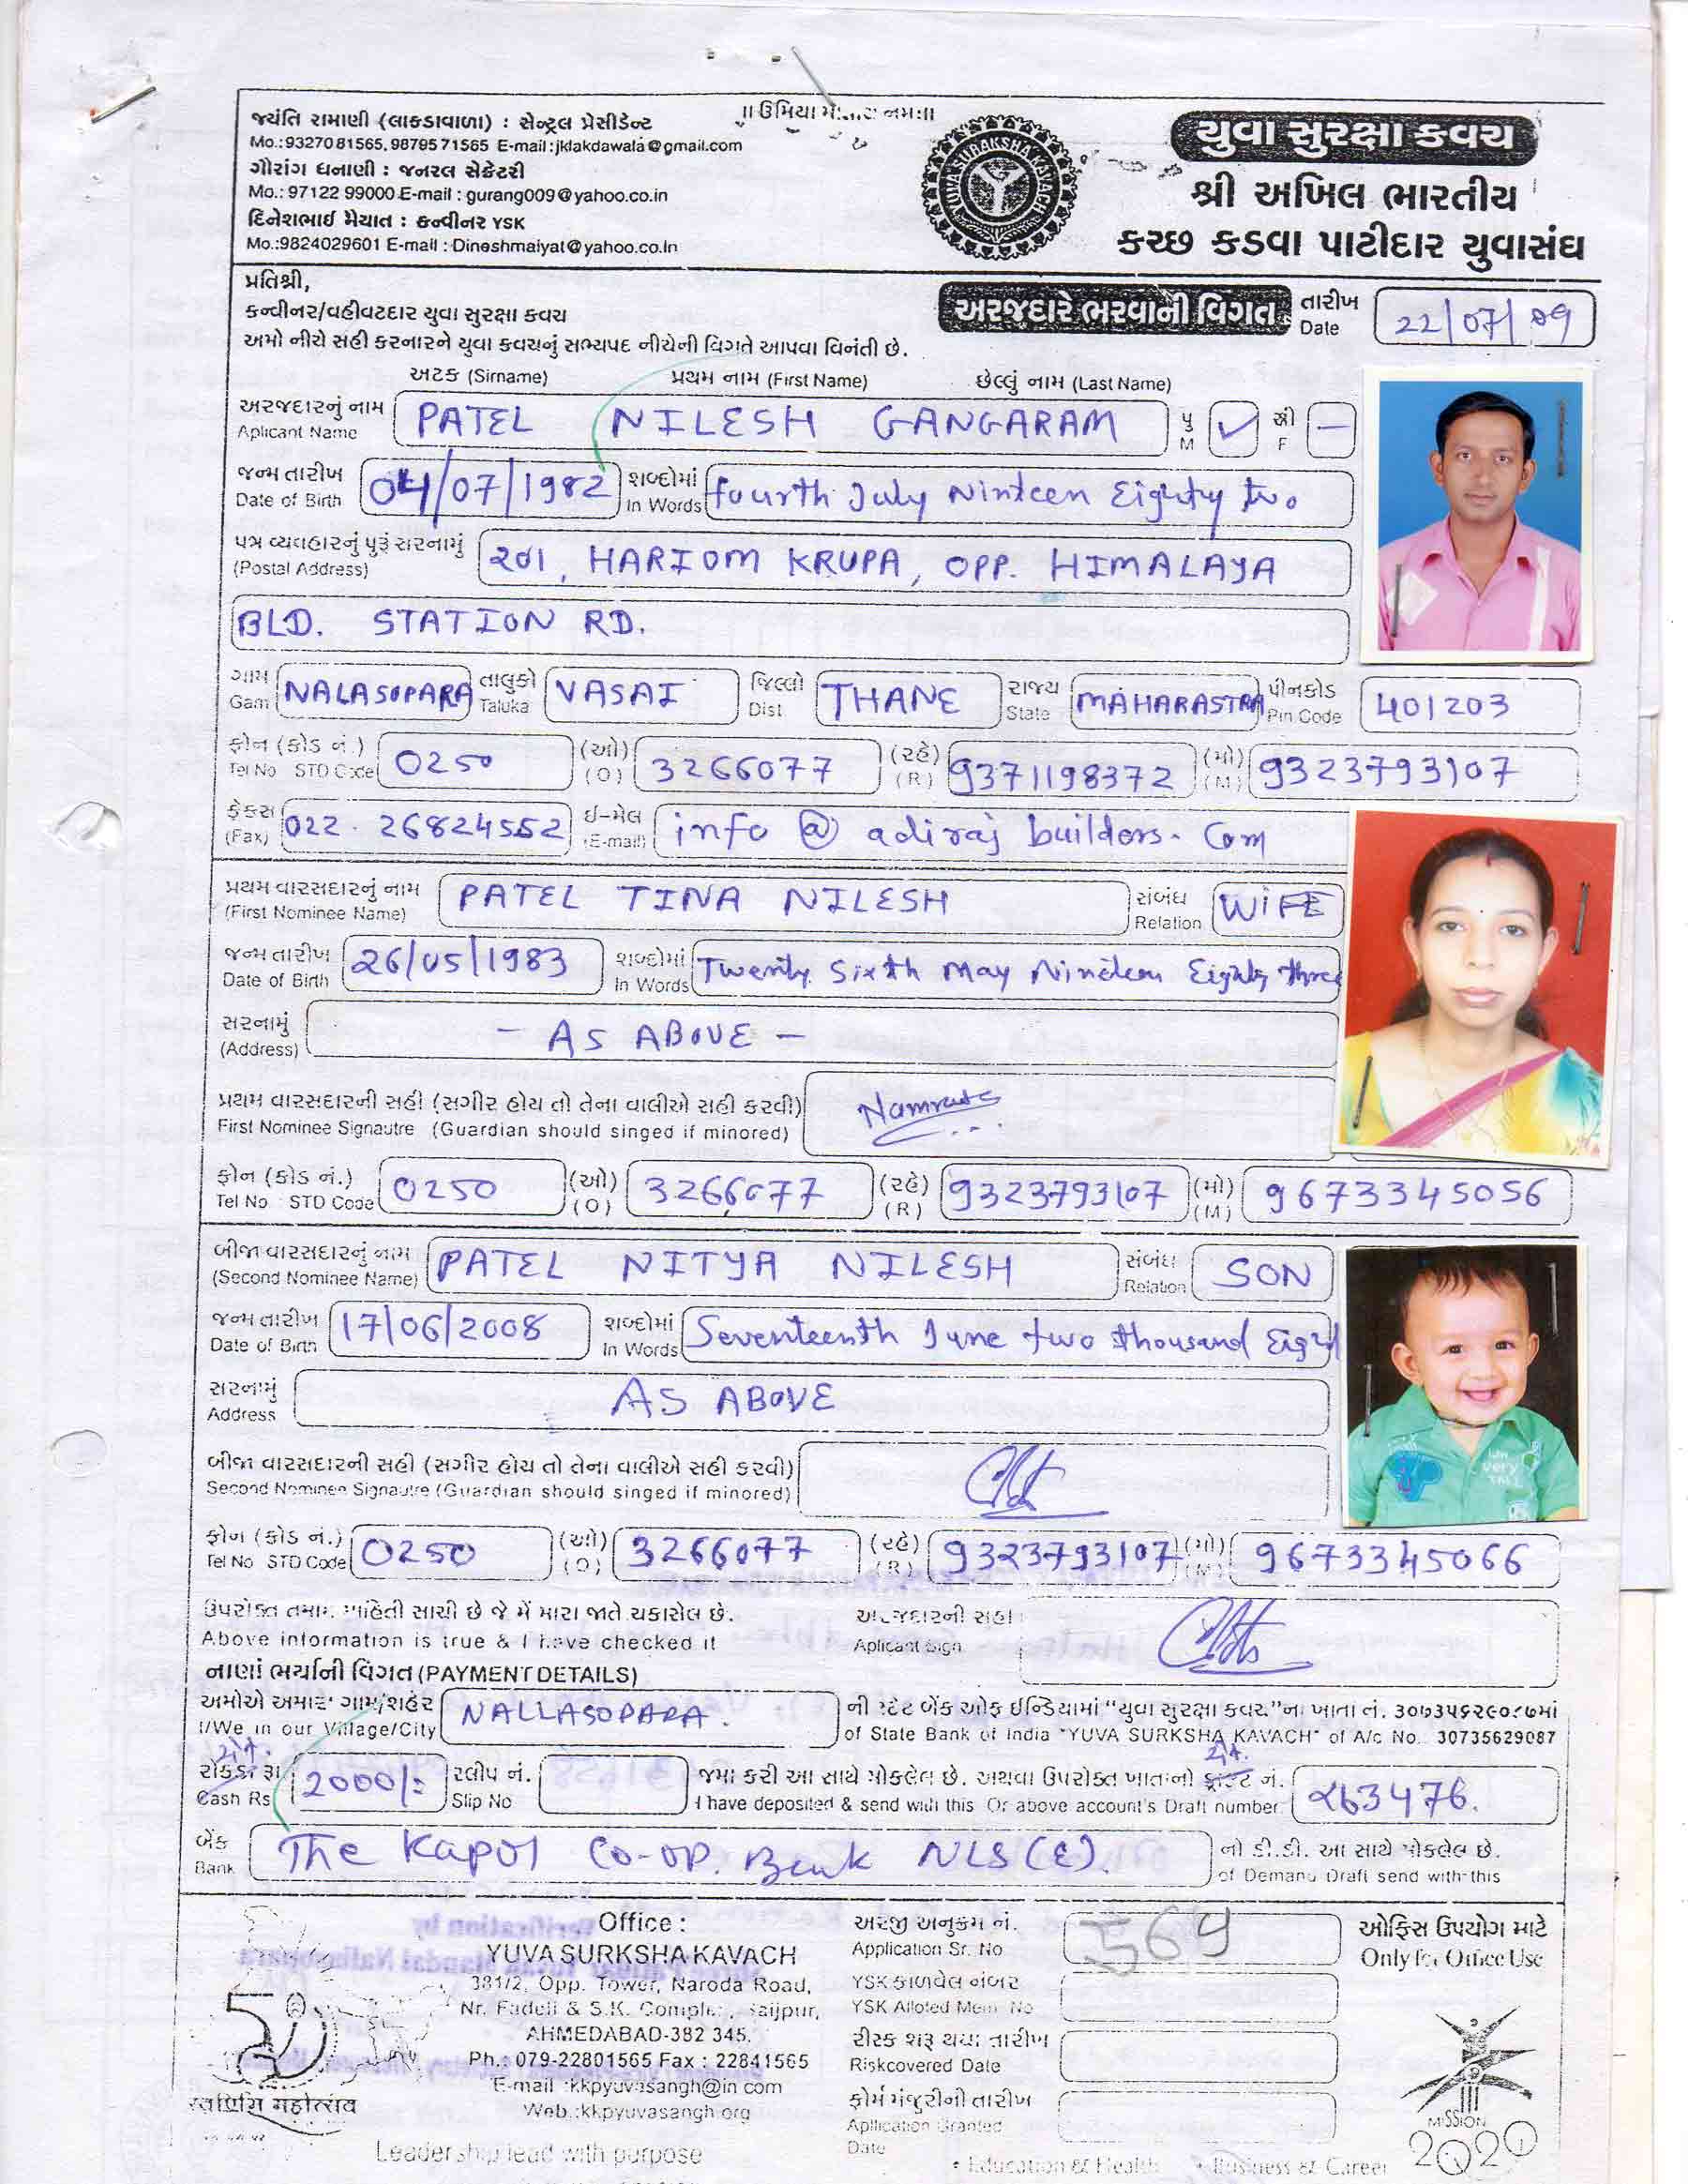 ॥ ઉમિયા
જ્યંતિ રામાણી (લાકડાવાળા) : સેન્ટ્રલ પ્રેસીડેન્ટ
Mo.:9327081565, 9879571565 E-mail :jklakdawala@gmail.com
ગૌરાંગ ધનાણી : જનરલ સેક્રેટરી
Mo.: 97122 99000 E-mail : gurang009@yahoo.co.in
દિનેશભાઈ મૈયાત : કન્વીનર YSK
Mo.:9824029601 E-mail : Dineshmaiyat@yahoo.co.in
YUVA SURAKSHA KAVACH
યુવા સુરક્ષા કવચ
શ્રી અખિલ ભારતીય
કચ્છ કડવા પાટીદાર યુવાસંઘ
પ્રતિશ્રી,
કન્વીનર/વહીવટદાર યુવા સુરક્ષા કવચ
અમો નીચે સહી કરનારને યુવા કવચનું સભ્યપદ નીચેની વિગતે આપવા વિનંતી છે.
અરજદારે ભરવાની વિગત
તારીખ Date 22/07/09
અટક (Sirname) પ્રથમ નામ (First Name) છેલ્લું નામ (Last Name)
અરજદારનું નામ Aplicant Name PATEL NILESH GANGARAM પુ M ✓ સ્ત્રી F —
જન્મ તારીખ Date of Birth 04/07/1982 શબ્દોમાં In Words fourth July Ninteen Eighty two
પત્ર વ્યવહારનું પુરૂં સરનામું (Postal Address) 201, HARIOM KRUPA, OPP. HIMALAYA
BLD. STATION RD.
ગામ Gam NALASOPARA તાલુકો Taluka VASAI જિલ્લો Dist. THANE રાજ્ય State MAHARASTRA પીનકોડ Pin Code 401203
ફોન (કોડ નં.) Tel No STD Code 0250 (ઓ) (O) 3266077 (રહે) (R) 9371198372 (મો) (M) 9323793107
ફેકસ (Fax) 022. 26824552 ઈ-મેલ (E-mail) info @ adiraj builders. Com
પ્રથમ વારસદારનું નામ (First Nominee Name) PATEL TINA NILESH સંબંધ Relation WIFE
જન્મ તારીખ Date of Birth 26/05/1983 શબ્દોમાં In Words Twenty Sixth May Nineteen Eighty three
સરનામું (Address) - AS ABOVE -
પ્રથમ વારસદારની સહી (સગીર હોય તો તેના વાલીએ સહી કરવી)
First Nominee Signautre (Guardian should singed if minored) Namrata
ફોન (કોડ નં.) Tel No STD Code 0250 (ઓ) (O) 3266077 (રહે) (R) 9323793107 (મો) (M) 9673345056
બીજા વારસદારનું નામ (Second Nominee Name) PATEL NITYA NILESH સંબંધ Relation SON
જન્મ તારીખ Date of Birth 17/06/2008 શબ્દોમાં In Words Seventeenth June two thousand Eight
સરનામું Address AS ABOVE
બીજા વારસદારની સહી (સગીર હોય તો તેના વાલીએ સહી કરવી)
Second Nominee Signautre (Guardian should singed if minored)
ફોન (કોડ નં.) Tel No STD Code 0250 (ઓ) (O) 3266077 (રહે) (R) 9323793107 (મો) (M) 9673345066
ઉપરોક્ત તમામ માહિતી સાચી છે જે મેં મારા જાતે ચકાસેલ છે. અરજદારની સહી
Above information is true & I have checked it Aplicant Sign
નાણાં ભર્યાની વિગત (PAYMENT DETAILS)
અમોએ અમારા ગામ/શહેર NALLASOPARA. ની સ્ટેટ બેંક ઓફ ઈન્ડિયામાં “યુવા સુરક્ષા કવચ”ના ખાતા નં. ૩૦૭૩૫૬૨૯૦૮૭માં
I/We in our Village/City of State Bank of India "YUVA SURKSHA KAVACH" of A/c No. 30735629087
રોકડા રૂા Cash Rs 2000/- સ્લીપ નં. Slip No જમા કરી આ સાથે મોકલેલ છે. અથવા ઉપરોક્ત ખાતાનો ડ્રાફ્ટ નં. 263476.
I have deposited & send with this Or above account's Draft number
બેંક Bank The Kapol Co-op. Bank NLS (E). નો ડી.ડી. આ સાથે મોકલેલ છે.
of Demand Draft send with this
Office :
YUVA SURKSHA KAVACH
381/2, Opp. Tower, Naroda Road,
Nr. Fadeli & S.K. Complex, Saijpur,
AHMEDABAD-382 345.
Ph.: 079-22801565 Fax : 22841565
E-mail :kkpyuvasangh@in com
Web.:kkpyuvasangh.org
અરજી અનુક્રમ નં. Application Sr. No 564
YSK ફાળવેલ નંબર YSK Alloted Mem No
રીસ્ક શરૂ થયા તારીખ Riskcovered Date
ફોર્મ મંજુરીની તારીખ Apllication Granted Date
ઓફિસ ઉપયોગ માટે
Only for Office Use
MISSION
2020
Leadership lead with purpose
• Education & Health • Business & Career